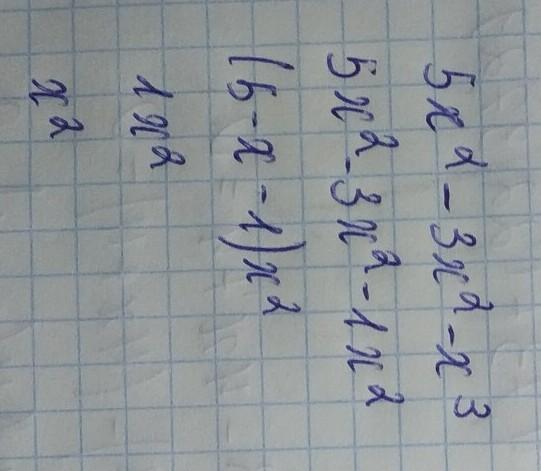 5x² - 3x² - x³
5x² - 3x² - 1x²
(5 - x - 1)x²
1x²
x²